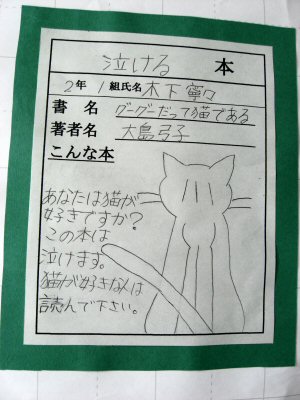 泣ける 本
2年 1組氏名 木下寧々
書名 グーグーだって猫である
著者名 大島弓子
こんな本
あなたは猫が
好きですか?
この本は
泣けます。
猫が好きな人は
読んで下さい。